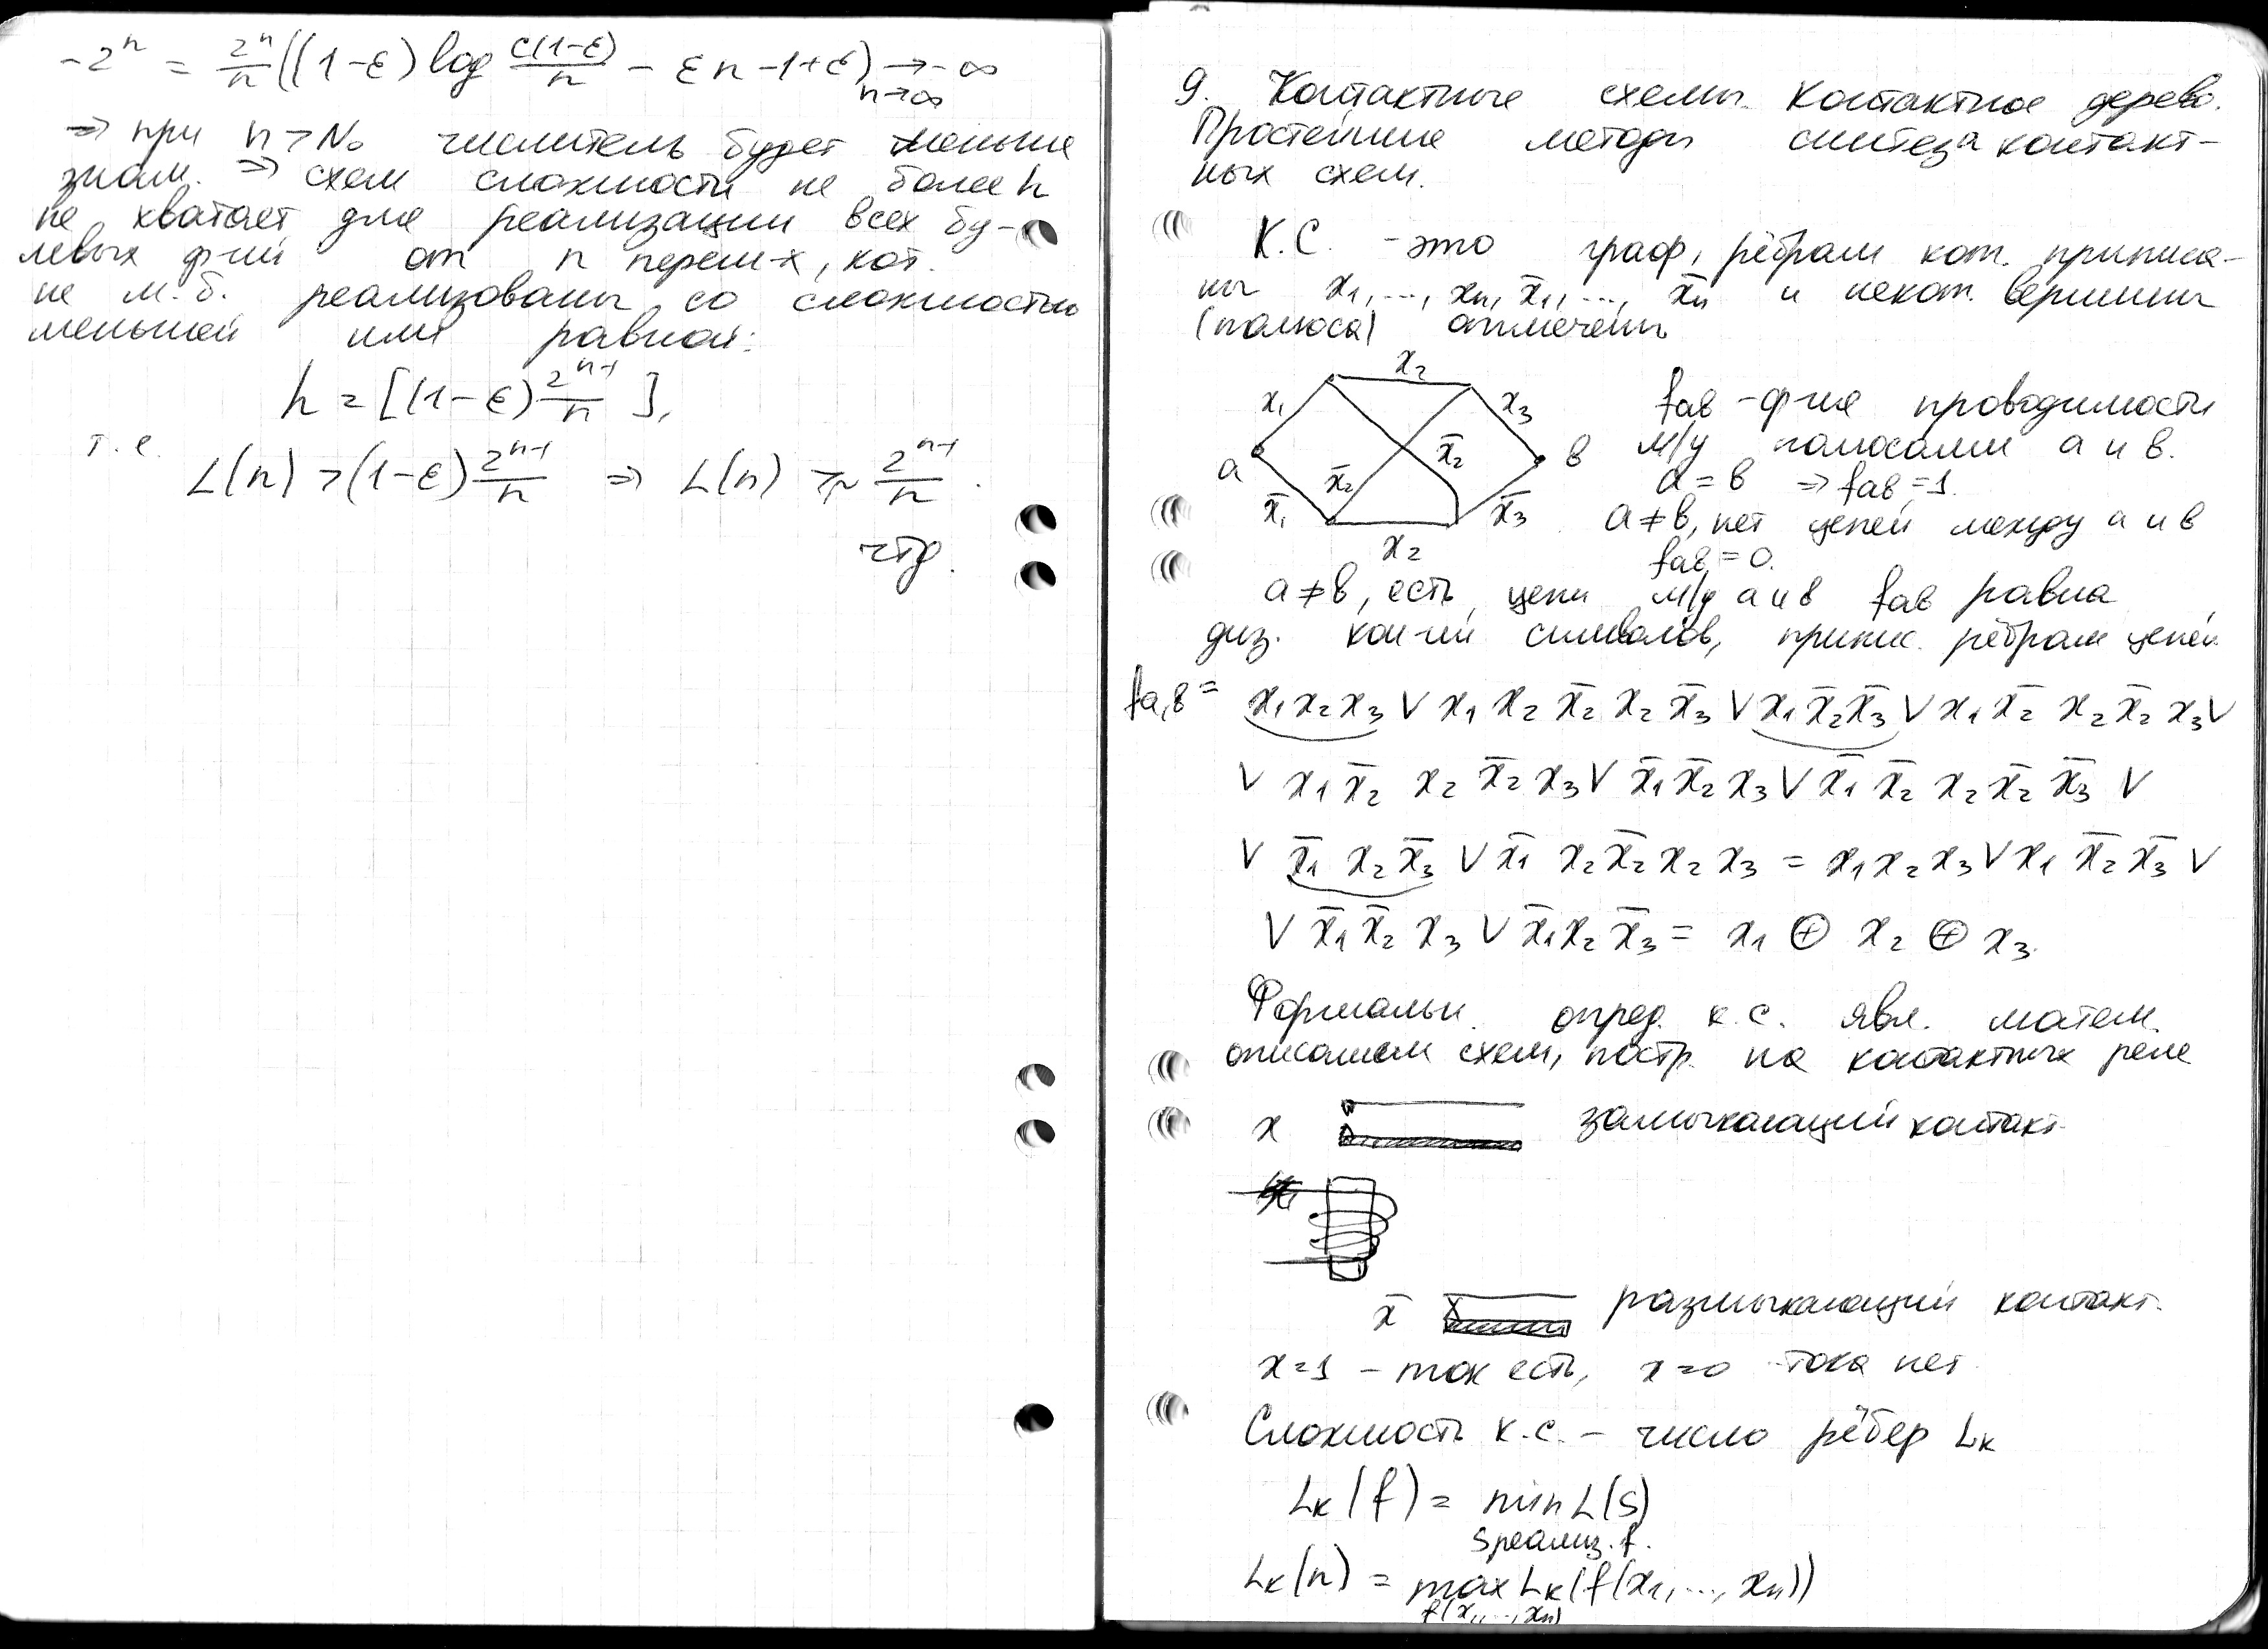 -2ⁿ = 2ⁿ/n ((1-ε) log c(1-ε)/n - εn - 1 + ε) → -∞
n→∞
⇒ при n > N₀ числитель будет меньше
знам. ⇒ схем сложности не более h
не хватает для реализации всех бу-
левых ф-ий от n перем-х, кот.
не м.б. реализованы со сложностью
меньшей или равной:
h = [(1-ε) 2ⁿ⁻¹/n ],
т.е.
L(n) > (1-ε) 2ⁿ⁻¹/n ⇒ L(n) ≳ 2ⁿ⁻¹/n .
чтд.
9. Контактные схемы. Контактное дерево.
Простейшие методы синтеза контакт-
ных схем.
К.С. - это граф, рёбрам кот. приписа-
ны x₁, ..., xₙ, x̄₁, ..., x̄ₙ и некот. вершины
(полюса) отмечены
x₁ x₂ x₃
a x̄₂ x̄₂ в
x̄₁ x₂ x̄₃
fав - ф-ия проводимости
м/у полюсами а и в.
а = в ⇒ fав = 1.
а ≠ в, нет цепей между а и в
fав = 0.
а ≠ в, есть цепи м/у а и в fав равна
диз. кон-ий символов, припис. рёбрам цепей
fа,в = x₁x₂x₃ V x₁ x₂ x̄₂ x₂ x̄₃ V x₁x̄₂x̄₃ V x₁ x̄₂ x₂ x̄₂ x₃ V
V x₁ x̄₂ x₂ x̄₂ x₃ V x̄₁ x̄₂ x₃ V x̄₁ x̄₂ x₂ x̄₂ x̄₃ V
V x̄₁ x₂ x̄₃ V x̄₁ x₂ x̄₂ x₂ x₃ = x₁x₂x₃ V x₁ x̄₂ x̄₃ V
V x̄₁ x̄₂ x₃ V x̄₁x₂ x̄₃ = x₁ ⊕ x₂ ⊕ x₃.
Формальн. опред. к.с. явл. матем.
описанием схем, постр. на контактных реле
x замыкающий контакт
x̄ размыкающий контакт.
x=1 - ток есть, x=0 тока нет
Сложность к.с. - число рёбер Lк
Lк(f) = min L(S)
S реализ. f.
Lк(n) = max Lк(f(x₁, ..., xₙ))
f(x₁, ..., xₙ)